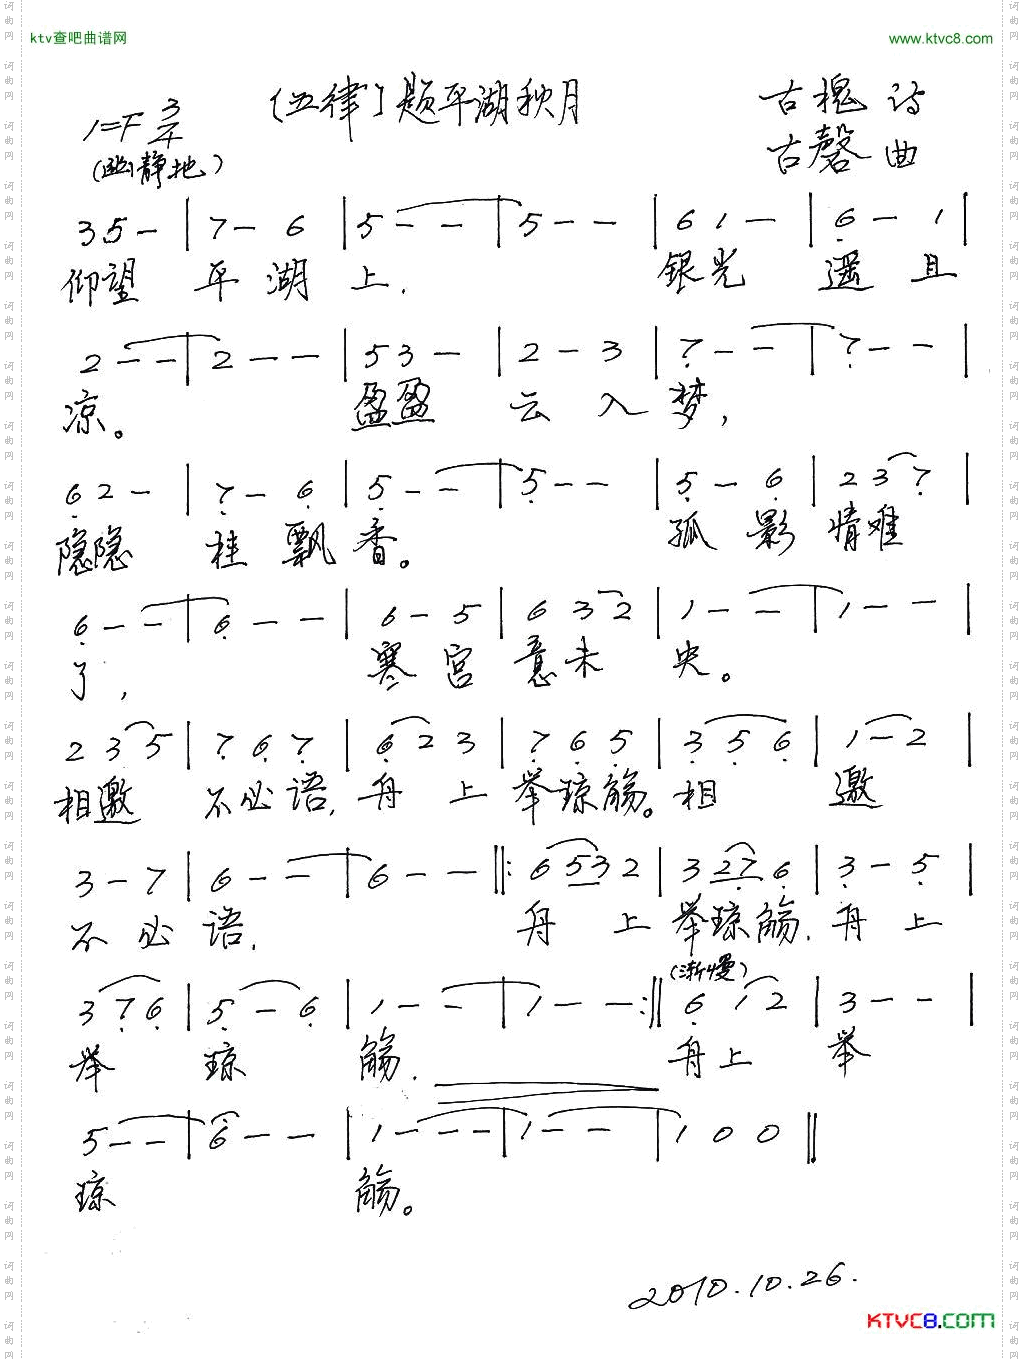 ktv查吧曲谱网
www.ktvc8.com
(五律)题平湖秋月
古槐 诗
1=F 3/4
古磬 曲
(幽静地)
3 5 - | 7 - 6 | 5 - - | 5 - - | 6 1 - | 6 - 1 |
仰望 平湖上, 银光 遥且
2 - - | 2 - - | 5 3 - | 2 - 3 | 7 - - | 7 - - |
凉。 盈盈 云入梦,
6 2 - | 7 - 6 | 5 - - | 5 - - | 5 - 6 | 2 3 7 |
隐隐 桂飘香。 孤影 情难
6 - - | 6 - - | 6 - 5 | 6 3 2 | 1 - - | 1 - - |
了, 寒宫 意未央。
2 3 5 | 7 6 7 | 6 2 3 | 7 6 5 | 3 5 6 | 1 - 2 |
相邀 不必语,舟上 举琼觞。相 邀
3 - 7 | 6 - - | 6 - - ‖: 6 5 3 2 | 3 2 7 6 | 3 - 5 |
不必语, 舟上 举琼觞,舟上
(渐慢)
3 7 6 | 5 - 6 | 1 - - | 1 - - :‖ 6 1 2 | 3 - - |
举 琼 觞, 舟上 举
5 - - | 6 - - | 1 - - - | 1 - - | 1 0 0 ‖
琼 觞。
2010.10.26.
KTVC8.COM